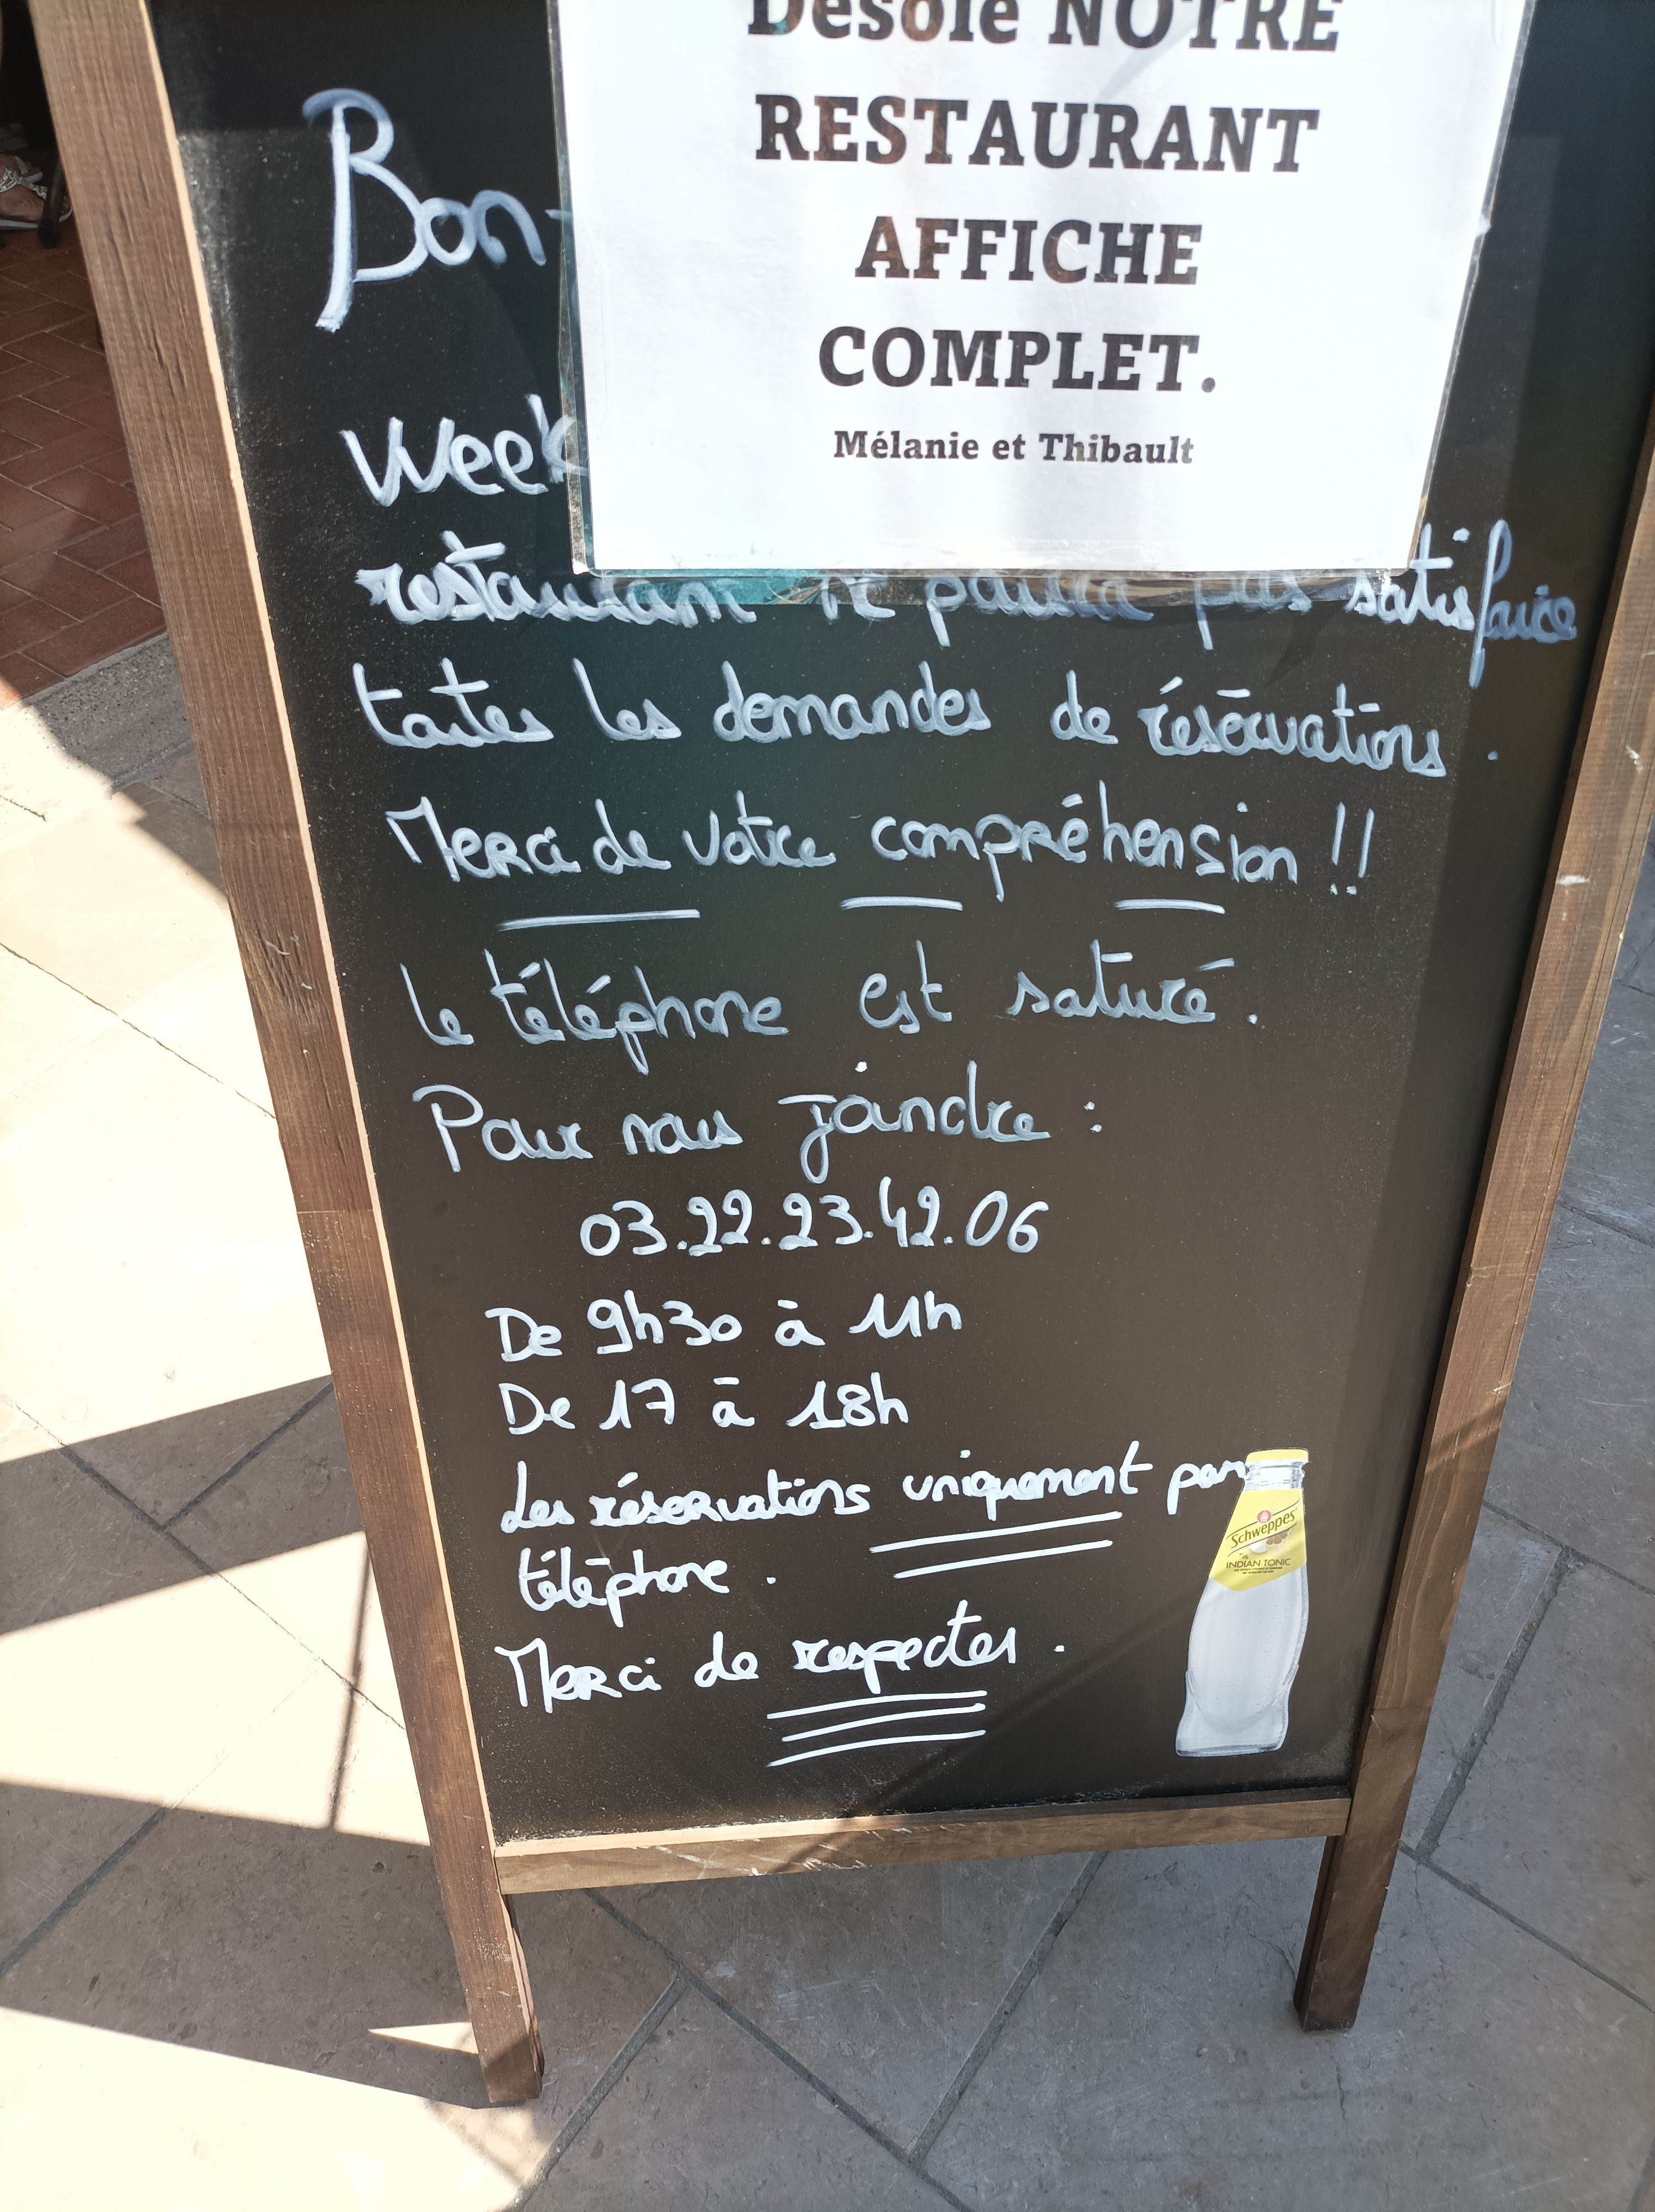 Désolé NOTRE
RESTAURANT
AFFICHE
COMPLET.
Mélanie et Thibault
Bon
Week
restaurant ne pourra pas satisfaire
toutes les demandes de réservations.
Merci de votre compréhension !!
Le téléphone est saturé.
Pour nous joindre :
03.22.23.42.06
De 9h30 à 11h
De 17 à 18h
Les réservations uniquement par
téléphone.
Merci de respecter.
Schweppes
INDIAN TONIC